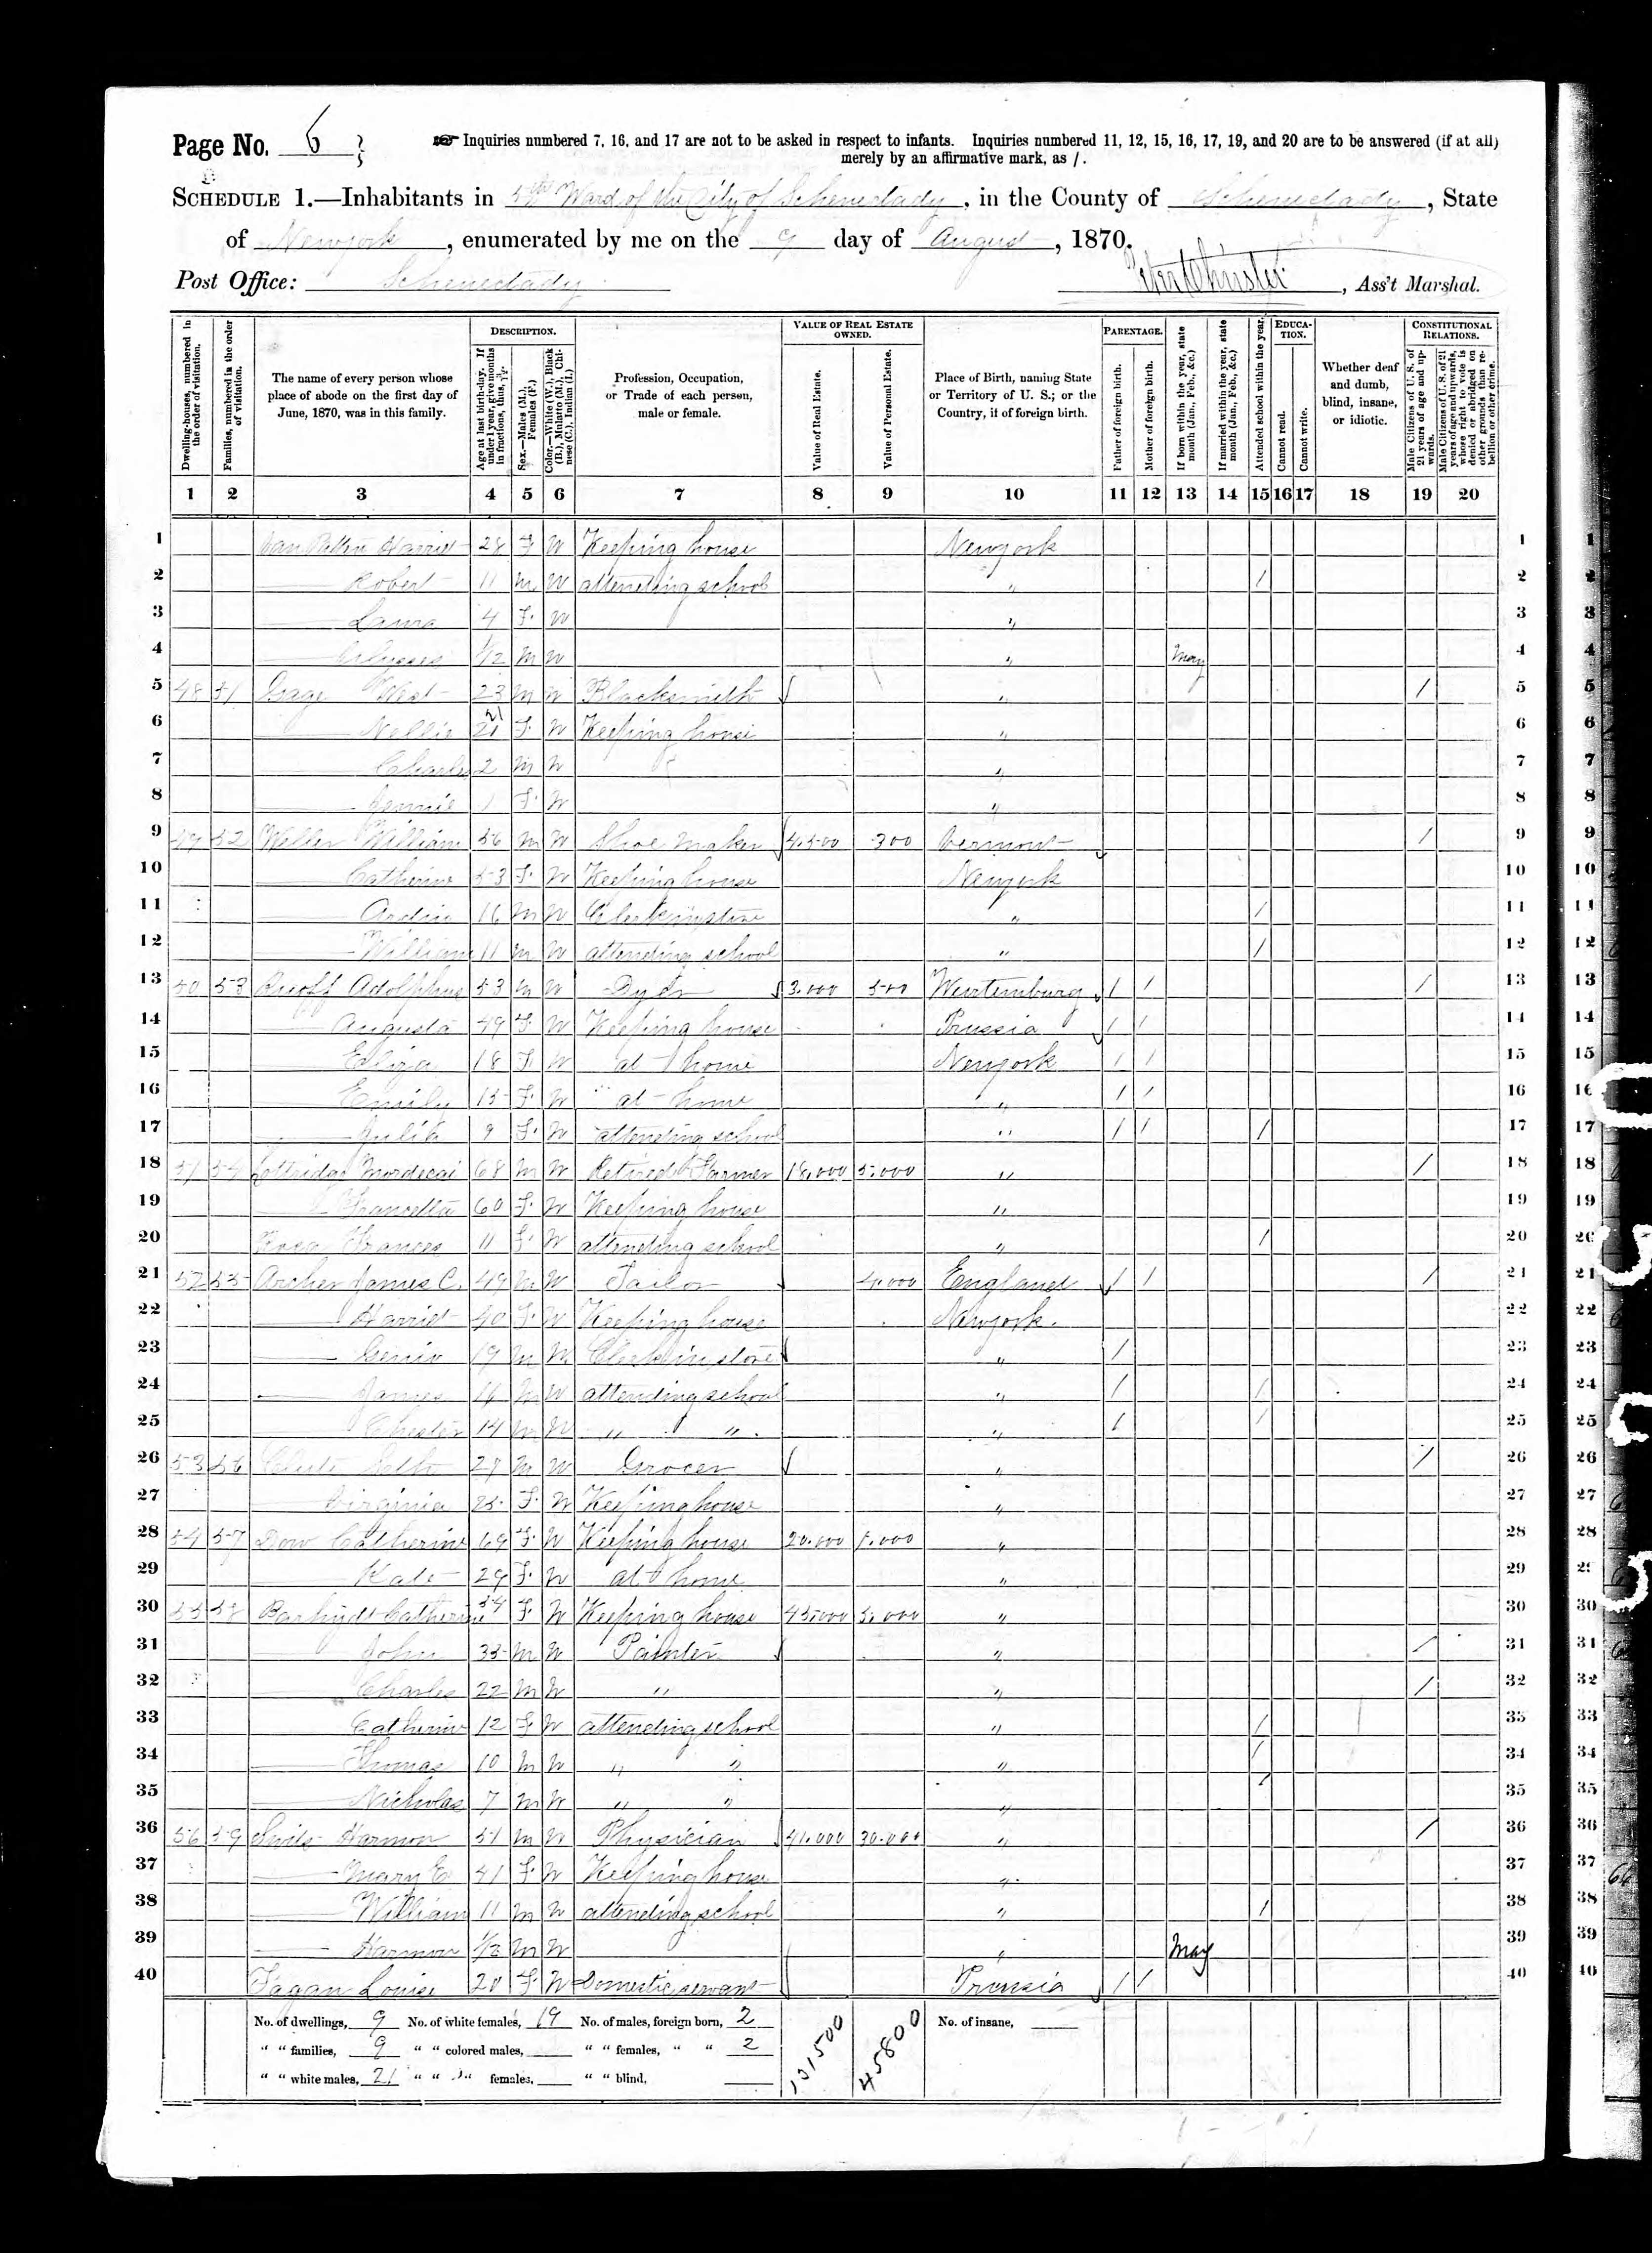 Page No. 6
Inquiries numbered 7, 16, and 17 are not to be asked in respect to infants. Inquiries numbered 11, 12, 15, 16, 17, 19, and 20 are to be answered (if at all)
merely by an affirmative mark, as /.
SCHEDULE 1.—Inhabitants in 5th Ward of the City of Schenectady, in the County of Schenectady, State
of Newyork, enumerated by me on the 9 day of August, 1870.
Post Office: Schenectady
, Ass't Marshal.
Dwelling-houses, numbered in the order of visitation.
Families, numbered in the order of visitation.
The name of every person whose place of abode on the first day of June, 1870, was in this family.
DESCRIPTION.
Age at last birth-day. If under 1 year, give months in fractions, thus, 3/12.
Sex.—Males (M.), Females (F.)
Color.—White (W.), Black (B.), Mulatto (M.), Chinese (C.), Indian (I.)
Profession, Occupation, or Trade of each person, male or female.
VALUE OF REAL ESTATE OWNED.
Value of Real Estate.
Value of Personal Estate.
Place of Birth, naming State or Territory of U. S.; or the Country, if of foreign birth.
PARENTAGE.
Father of foreign birth.
Mother of foreign birth.
If born within the year, state month (Jan., Feb., &c.)
If married within the year, state month (Jan., Feb., &c.)
Attended school within the year.
EDUCATION.
Cannot read.
Cannot write.
Whether deaf and dumb, blind, insane, or idiotic.
CONSTITUTIONAL RELATIONS.
Male Citizens of U. S. of 21 years of age and upwards.
Male Citizens of U. S. of 21 years of age and upwards, whose right to vote is denied or abridged on other grounds than rebellion or other crime.
1 2 3 4 5 6 7 8 9 10 11 12 13 14 15 16 17 18 19 20
1 Van Patten Harriet 28 F W Keeping house Newyork 1
2 — Robert 11 M W attending school " / 2
3 — Laura 4 F W " 3
4 — Ulysses 1/12 M W " May 4
5 48 51 Gage West 23 M W Blacksmith " / 5
6 — Nellie 21 F W Keeping house " 6
7 — Charles 2 M W " 7
8 — Jennie 1 F W " 8
9 49 52 Weller William 56 M W Shoe maker 4.500 300 Vermont / 9
10 — Catherine 53 F W Keeping house Newyork 10
11 — 16 M W Clerk in store " / 11
12 — William 11 M W attending school " / 12
13 50 53 Adolphus 53 M W Dyer 3.000 500 Wurtemburg / / / 13
14 — Augusta 49 F W Keeping house Prussia / / 14
15 — Eliza 18 F W at home Newyork / / 15
16 — Emily 15 F W at home " / / 16
17 — Julia 9 F W attending school " / / / 17
18 51 54 Mordecai 68 M W Retired Farmer 18.000 5.000 " / 18
19 — Francetta 60 F W Keeping house " 19
20 Frances 11 F W attending school " / 20
21 52 55 Archer James C. 49 M W Tailor 4.000 England / / / 21
22 — Harriet 40 F W Keeping house Newyork. 22
23 — 19 M W Clerk in store " / 23
24 — James 16 M W attending school " / / 24
25 — Chester 14 M W " " " / / 25
26 53 56 Clute 27 M W Grocer " / 26
27 — Virginia 25 F W Keeping house " 27
28 54 57 Dow Catherine 69 F W Keeping house 20.000 1.000 " 28
29 — Kate 29 F W at home " 29
30 55 58 Barhydt Catherine 54 F W Keeping house 45.000 5.000 " 30
31 — John 35 M W Painter " / 31
32 — Charles 22 M W " " / 32
33 — Catherine 12 F W attending school " / 33
34 — Thomas 10 M W " " " / 34
35 — Nicholas 7 M W " " " / 35
36 56 59 Harmon 51 M W Physician 41.000 30.000 " / 36
37 — Mary E 41 F W Keeping house " 37
38 — William 11 M W attending school " / 38
39 — Harmon 1/12 M W " May 39
40 Fagan Louise 20 F W Domestic servant Prussia / / 40
No. of dwellings, 9 No. of white females, 19 No. of males, foreign born, 2 131500 45800 No. of insane,
" " families, 9 " " colored males, " " females, " " 2
" " white males, 21 " " " females, " " blind,